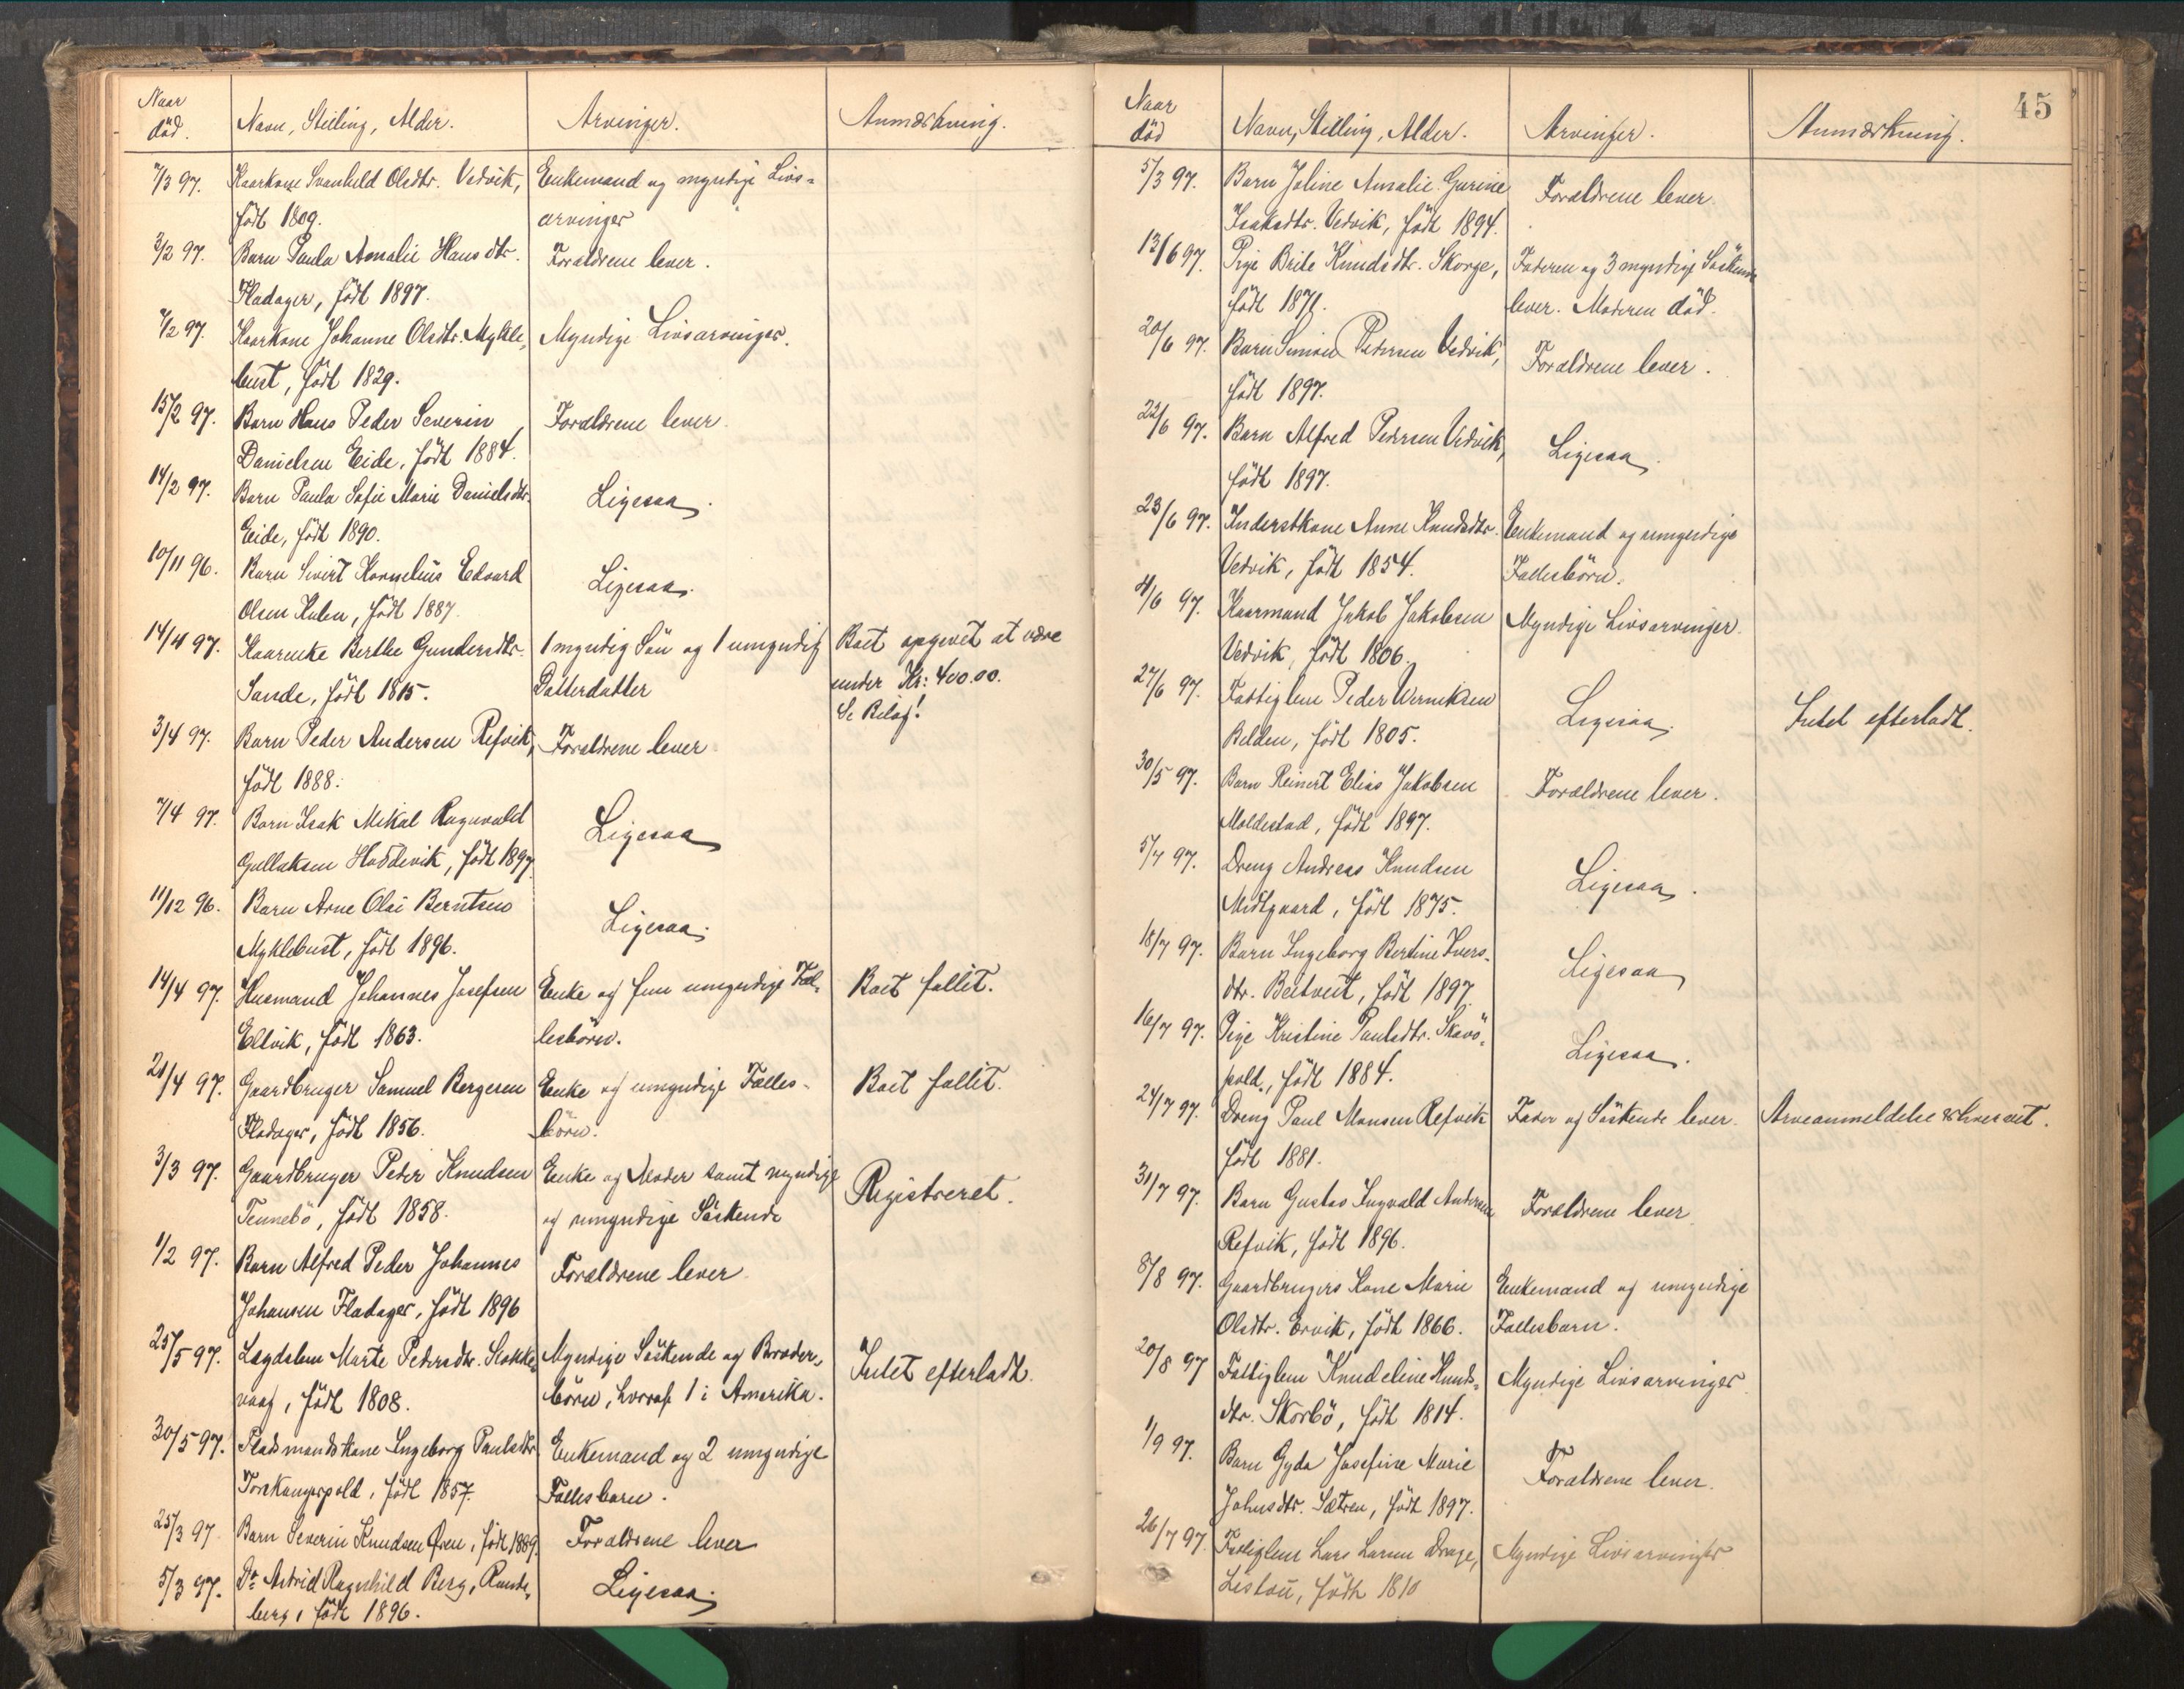 Naar
död.
Navn, Stilling, Alder.
Arvinger.
Anmærkning.
7/3 97. Kaarkone Svanhild Olsdtr. Vedvik, Enkemand og myndige Livs-
født 1809. arvinger
3/2 97. Barn Paula Amalie Hansdtr. Forældrene lever.
Fladager, født 1897.
7/2 97. Kaarkone Johanne Olsdtr. Mykle- Myndige Livsarvinger.
bust, født 1829.
15/2 97. Barn Hans Peder Severin Forældrene lever
Danielsen Eide, født 1884.
14/2 97. Barn Paula Sofie Marie Danielsdtr. Ligesaa.
Eide, født 1890.
10/11 96. Barn Sivert Kornelius Edvard Ligesaa.
Olsen , født 1887.
14/4 97. Kaarenke Berthe Gundersdtr. 1 myndig Sön og 1 umyndig Boet opgivet at være
Sande, født 1815. Datterdatter under Kr: 400.00.
Se Bilag!
3/4 97. Barn Peder Andersen Refvik, Forældrene lever
født 1888.
7/4 97. Barn Isak Mikal Ragnvald Ligesaa
Gullaksen Hoddevik, født 1897
11/12 96. Barn Arne Olai Berntsen Ligesaa.
Myklebust, født 1896.
14/4 97. Husmand Johannes Josefsen Enke og fem umyndige Fæl- Boet fallit.
Eltvik, født 1863. lesbörn.
21/4 97. Gaardbruger Samuel Bergesen Enke og umyndige Fælles- Boet fallit.
Fladager, født 1856. börn.
3/3 97. Gaardbruger Peder Knudsen Enke og Moder samt myndige Registreret.
Tennebö, født 1858. og umyndige Söskende
1/2 97. Barn Alfred Peder Johannes Forældrene lever
Johansen Fladager, født 1896
25/5 97. Lægdslem Marte Pedersdtr. Stokke- Myndige Söskende og Broder- Intet efterladt.
vaag, født 1808. börn, hvoraf 1 i Amerika.
30/5 97. Pladsmandskone Ingeborg Paulsdtr. Enkemand og 2 umyndige
Torskangerpold, født 1857. Fællesbarn.
25/3 97. Barn Severin Knudsen Øren, født 1889. Forældrene lever
5/3 97. Do Astrid Ragnhild Berg, Runde- Ligesaa.
berg, født 1896.
45
Naar
död
Navn, Stilling, Alder.
Arvinger.
Anmærkning.
5/3 97. Barn Joline Amalie Gurine Forældrene lever.
Isaksdtr. Vedvik, født 1894.
13/6 97. Pige Brite Knudsdtr. Skorge, Faderen og 3 myndige Söskende
født 1871. lever. Moderen död.
20/6 97. Barn Simon Pedersen Vedvik, Forældrene lever.
født 1897.
22/6 97. Barn Alfred Pedersen Vedvik, Ligesaa.
født 1897.
23/6 97. Inderstkone Anne Knudsdtr. Enkemand og umyndige
Vedvik, født 1854. Fællesbörn.
4/6 97. Kaarmand Jakob Jakobsen Myndige Livsarvinger.
Vedvik, født 1806.
27/6 97. Fattiglem Peder Verniksen Ligesaa. Intet efterladt.
Belden, født 1805.
30/5 97. Barn Reinert Elias Jakobsen Forældrene lever.
Moldestad, født 1897.
5/7 97. Dreng Andreas Knudsen Ligesaa.
Midtgaard, født 1875.
18/7 97. Barn Ingeborg Bertine Ivers- Ligesaa
dtr. Beitveit, født 1897.
16/7 97. Pige Kristine Paulsdtr. Skavö- Ligesaa.
pold, født 1884.
24/7 97. Dreng Paul Monsen Refvik Fader og Söskende lever. Arveanmeldelse
født 1881.
31/7 97. Barn Gustav Ingvald Andersen Forældrene lever
Refvik, født 1896.
8/8 97. Gaardbrugers Kone Marie Enkemand og umyndige
Olsdtr. Ervik, født 1866. Fællesbarn.
20/8 97 Fattiglem Knudeline Knuds- Myndige Livsarvinger
dtr. Skorbö, født 1814.
1/9 97. Barn Gyda Josefine Marie Forældrene lever.
Johnsdtr. Sætren, født 1897.
26/7 97. Fattiglem Lars Larsen Drage, Myndige Livsarvinger
født 1810